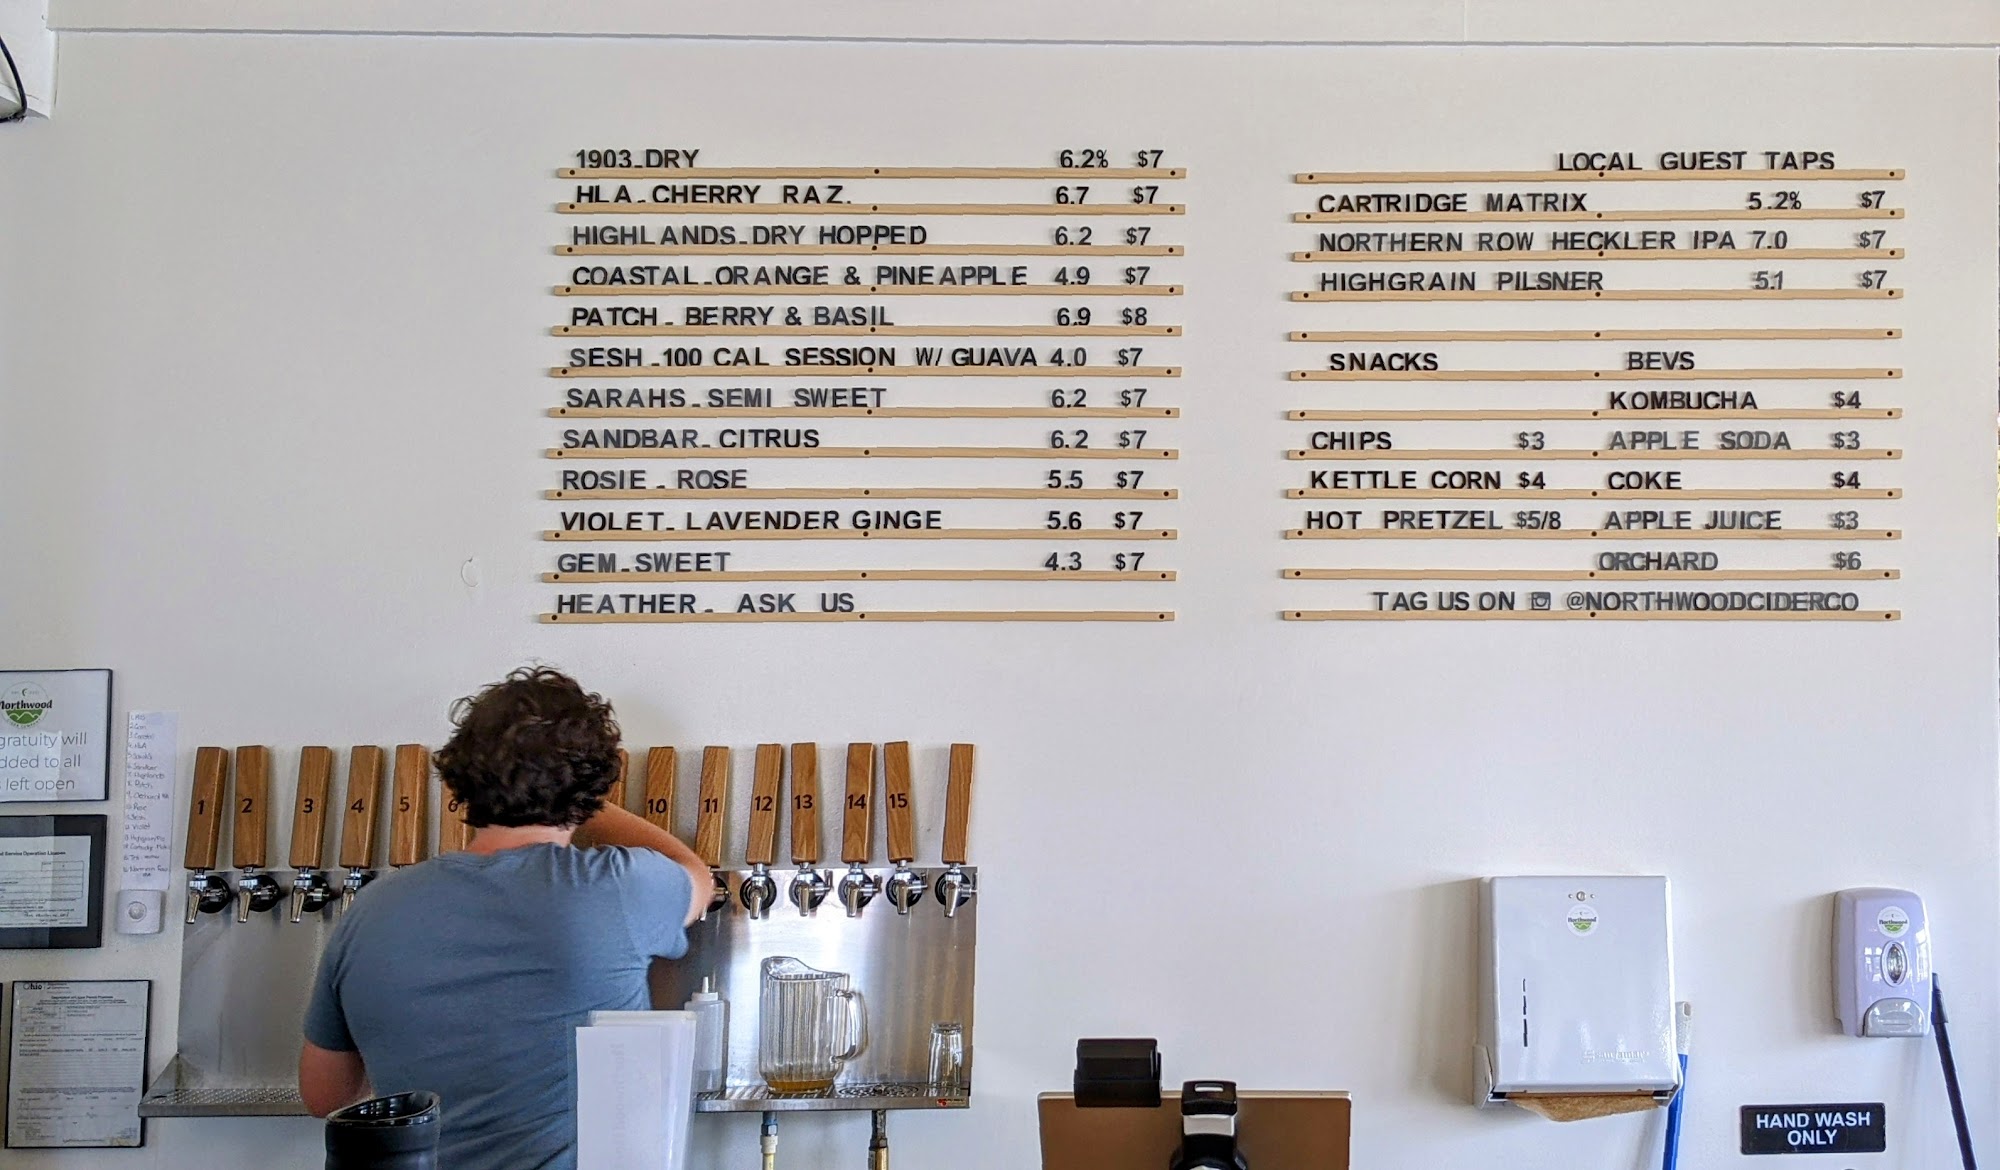 1903-DRY 6.2% $7
HLA-CHERRY RAZ. 6.7 $7
HIGHLANDS-DRY HOPPED 6.2 $7
COASTAL-ORANGE & PINEAPPLE 4.9 $7
PATCH - BERRY & BASIL 6.9 $8
SESH -100 CAL SESSION W/ GUAVA 4.0 $7
SARAHS-SEMI SWEET 6.2 $7
SANDBAR-CITRUS 6.2 $7
ROSIE - ROSE 5.5 $7
VIOLET- LAVENDER GINGE 5.6 $7
GEM-SWEET 4.3 $7
HEATHER- ASK US
LOCAL GUEST TAPS
CARTRIDGE MATRIX 5.2% $7
NORTHERN ROW HECKLER IPA 7.0 $7
HIGHGRAIN PILSNER 5.1 $7
SNACKS BEVS
KOMBUCHA $4
CHIPS $3 APPLE SODA $3
KETTLE CORN $4 COKE $4
HOT PRETZEL $5/8 APPLE JUICE $3
ORCHARD $6
TAG US ON @NORTHWOODCIDERCO
Northwood
gratuity will
dded to all
left open
1 2 3 4 5 6 10 11 12 13 14 15
Ohio
Northwood
Northwood
HAND WASH
ONLY